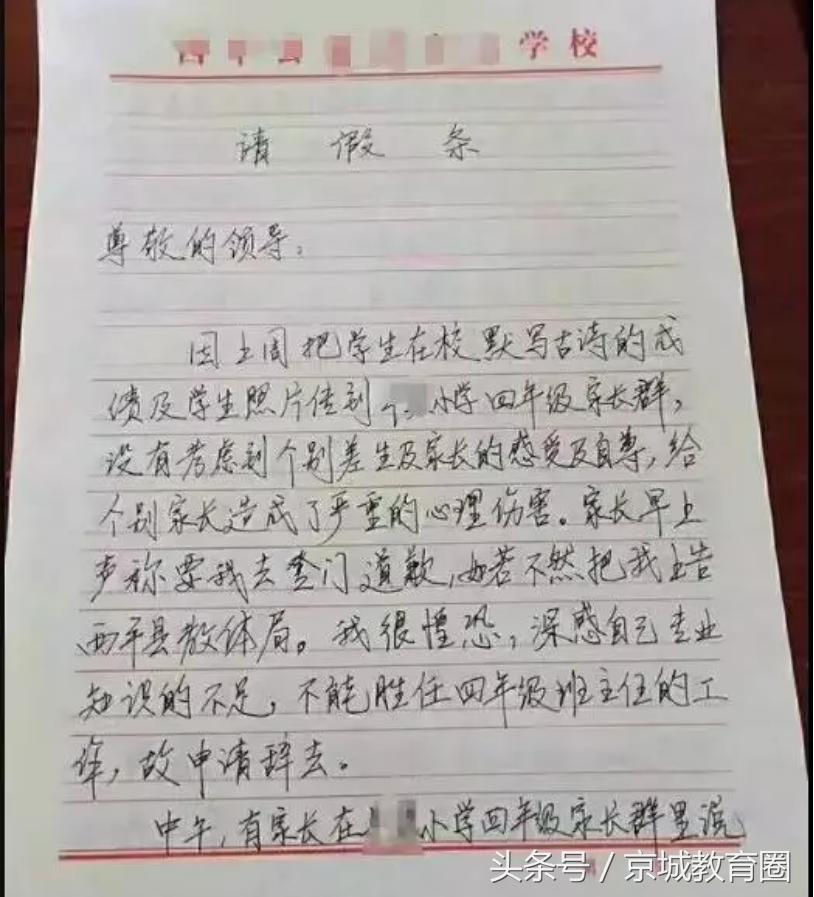 学校
请假条
尊敬的领导:
因上周把学生在校默写古诗的成
绩及学生照片传到 小学四年级家长群,
没有考虑到个别差生及家长的感受及自尊,给
个别家长造成了严重的心理伤害。家长早上
声称要我去登门道歉,如若不然把我上告
西平县教体局。我很惶恐,深感自己专业
知识的不足,不能胜任四年级班主任的工
作,故申请辞去。
中午,有家长在 小学四年级家长群里说
头条号/京城教育圈